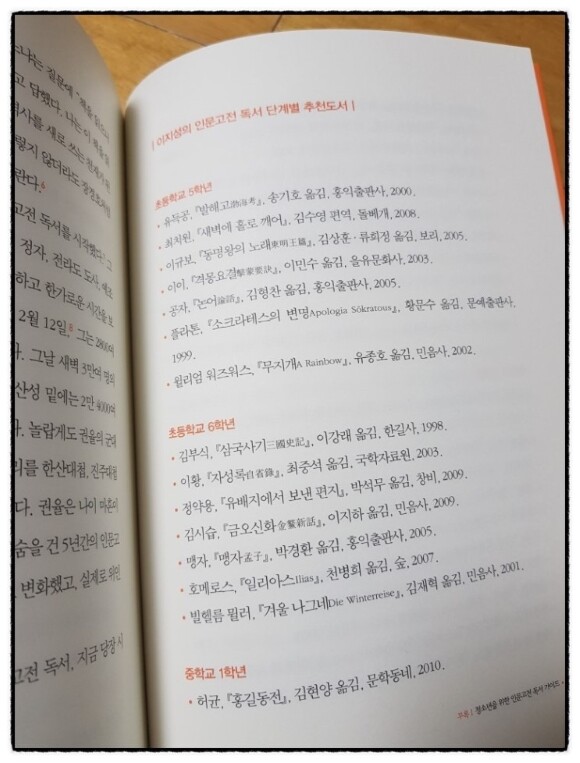 느냐는 질문에 "책을 읽으니
고 답했다. 나는 이 책을 읽
역사를 새로 쓰는 천재가 되
렇지 않더라도 창칼로 치면
란다.
고전 독서를 시작했다. 그
정자, 전라도 도사, 예조
하고 한가로운 시간을 보
2월 12일. 그는 2800여
다. 그날 새벽 3만여 명의
산성 밑에는 2만 4000여
다. 놀랍게도 권율의 군대
리를 한산대첩, 진주대첩
다. 권율은 나이 마흔이
숨을 건 5년간의 인문고
변화했고, 실제로 위인
고전 독서, 지금 당장 시
| 이지성의 인문고전 독서 단계별 추천도서 |
초등학교 5학년
• 유득공, 『발해고渤海考』, 송기호 옮김, 홍익출판사, 2000.
• 최치원, 『새벽에 홀로 깨어』, 김수영 편역, 돌베개, 2008.
• 이규보, 『동명왕의 노래東明王篇』, 김상훈·류희정 옮김, 보리, 2005.
• 이이, 『격몽요결擊蒙要訣』, 이민수 옮김, 을유문화사, 2003.
• 공자, 『논어論語』, 김형찬 옮김, 홍익출판사, 2005.
• 플라톤, 『소크라테스의 변명Apologia Sōkratous』, 황문수 옮김, 문예출판사,
1999.
• 윌리엄 워즈워스, 『무지개A Rainbow』, 유종호 옮김, 민음사, 2002.
초등학교 6학년
• 김부식, 『삼국사기三國史記』, 이강래 옮김, 한길사, 1998.
• 이황, 『자성록自省錄』, 최중석 옮김, 국학자료원, 2003.
• 정약용, 『유배지에서 보낸 편지』, 박석무 옮김, 창비, 2009.
• 김시습, 『금오신화金鰲新話』, 이지하 옮김, 민음사, 2009.
• 맹자, 『맹자孟子』, 박경환 옮김, 홍익출판사, 2005.
• 호메로스, 『일리아스Ilias』, 천병희 옮김, 숲, 2007.
• 빌헬름 뮐러, 『겨울 나그네Die Winterreise』, 김재혁 옮김, 민음사, 2001.
중학교 1학년
• 허균, 『홍길동전』, 김현양 옮김, 문학동네, 2010.
부록 | 청소년을 위한 인문고전 독서 가이드